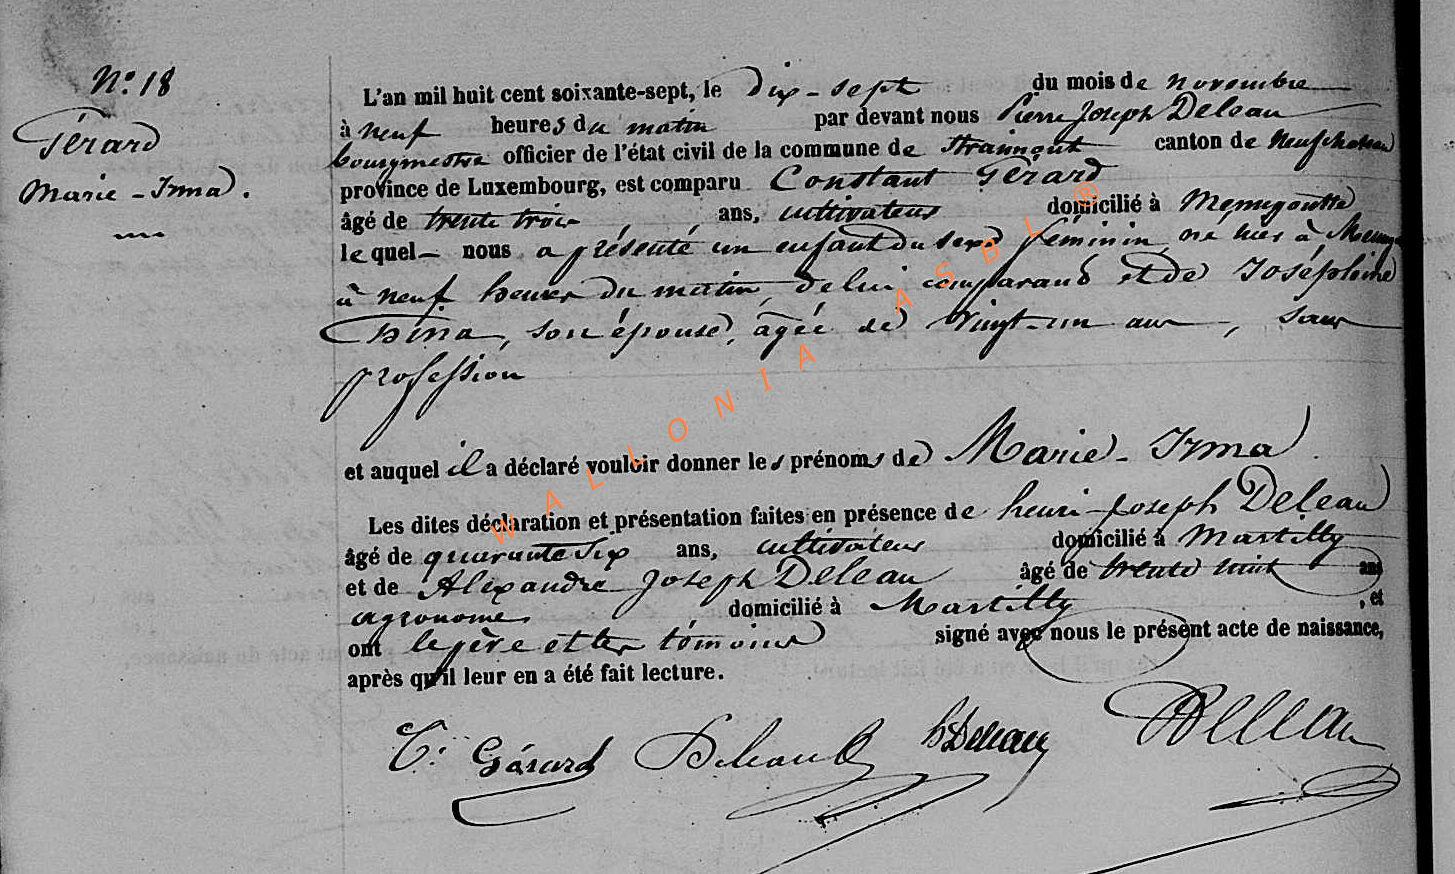 N° 18
Gérard
Marie-Irma.
L'an mil huit cent soixante-sept, le dix-sept du mois de novembre
à neuf heures du matin par devant nous Pierre Joseph Deleau
bourgmestre officier de l'état civil de la commune de Straimont canton de Neufchateau
province de Luxembourg, est comparu Constant Gérard
âgé de trente trois ans, cultivateur domicilié à Menugoutte
lequel nous a présenté un enfant du sexe féminin, né hier à Menug
à neuf heures du matin, de lui comparant et de Joséphine
son épouse, âgée de vingt-un ans, sans
profession
et auquel il a déclaré vouloir donner les prénoms de Marie-Irma.
Les dites déclaration et présentation faites en présence de henri-Joseph Deleau
âgé de quarante six ans, cultivateur domicilié à Martilly
et de Alexandre Joseph Deleau âgé de trente huit ans
agronome, domicilié à Martilly, et
ont le père et les témoins signé avec nous le présent acte de naissance,
après qu'il leur en a été fait lecture.
C. Gérard Deleau hDeleau Deleau
WALLONIA ASBL ®